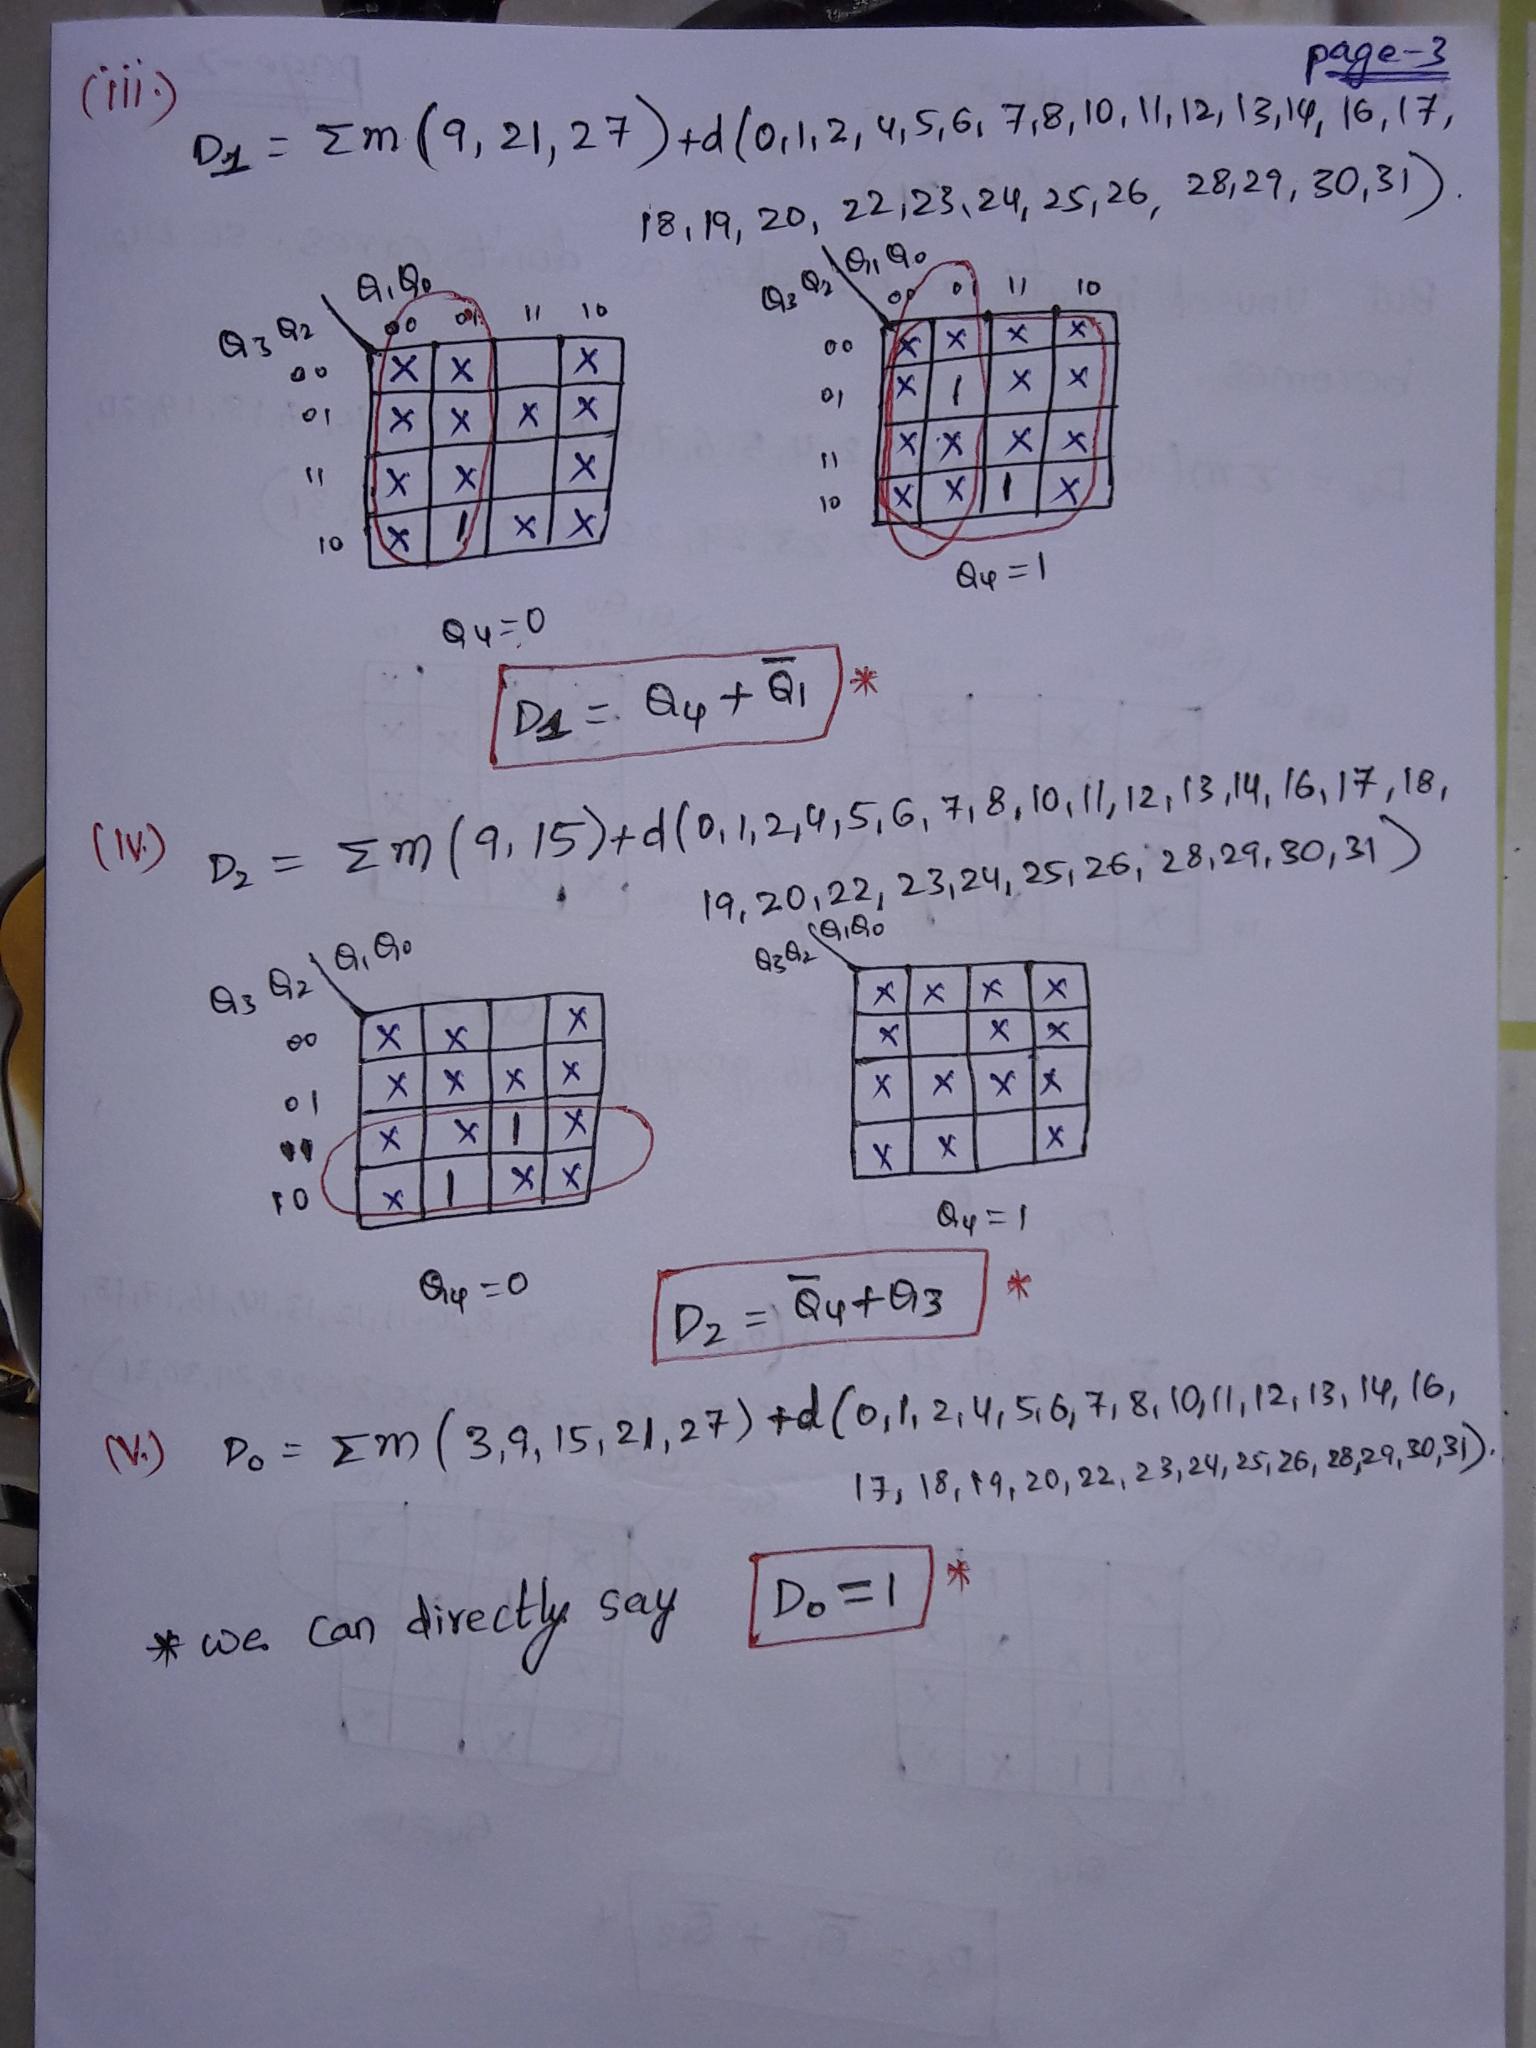 page-3
(iii.)
D1 = Σm (9, 21, 27) +d (0,1,2, 4,5,6, 7,8,10,11,12,13,14, 16,17,
18,19, 20, 22,23,24, 25,26, 28,29, 30,31).
Q1Q0 Q1Q0
Q3Q2 00 01 11 10 Q3Q2 00 01 11 10
00 X X X 00 X X X X
01 X X X X 01 X 1 X X
11 X X X 11 X X X X
10 X 1 X X 10 X X 1 X
Q4=1
Q4=0
D1 = Q4 + Q̅1 *
(iv.) D2 = Σm (9, 15)+d(0,1,2,4,5,6,7,8,10,11,12,13,14,16,17,18,
19,20,22, 23,24,25,26, 28,29,30,31)
Q3Q2 Q1Q0 Q3Q2 Q1Q0
00 X X X X X X X
01 X X X X X X X
11 X X 1 X X X X X
10 X 1 X X X X X
Q4=1
Q4=0
D2 = Q̅4+Q3 *
(v.) D0 = Σm (3,9,15,21,27) +d (0,1,2,4,5,6,7,8,10,11,12,13,14,16,
17, 18,19,20,22,23,24,25,26,28,29,30,31).
* we can directly say D0 = 1 *